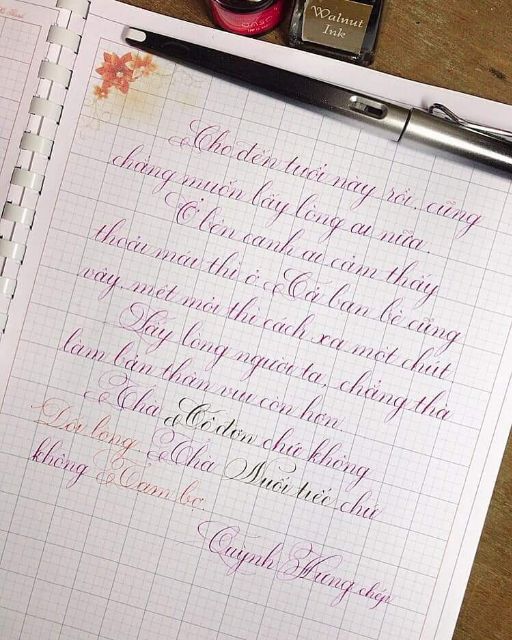 Walnut
Ink
Cho đến tuổi này rồi, cũng
chẳng muốn lấy lòng ai nữa.
Ở bên cạnh ai cảm thấy
thoải mái thì ở. Cả bạn bè cũng
vậy, mệt mỏi thì cách xa một chút
Lấy lòng người ta, chẳng thà
làm bản thân vui còn hơn
Thà Cô đơn chứ không
Dối lòng. Thà Nuối tiếc chứ
không Tạm bợ.
Quỳnh Hưng chép